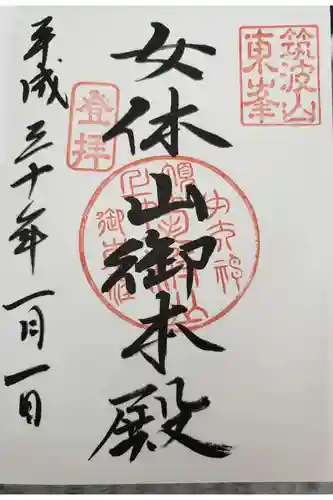 筑波山
東峯
女体山御本殿
登拝
平成三十年一月一日